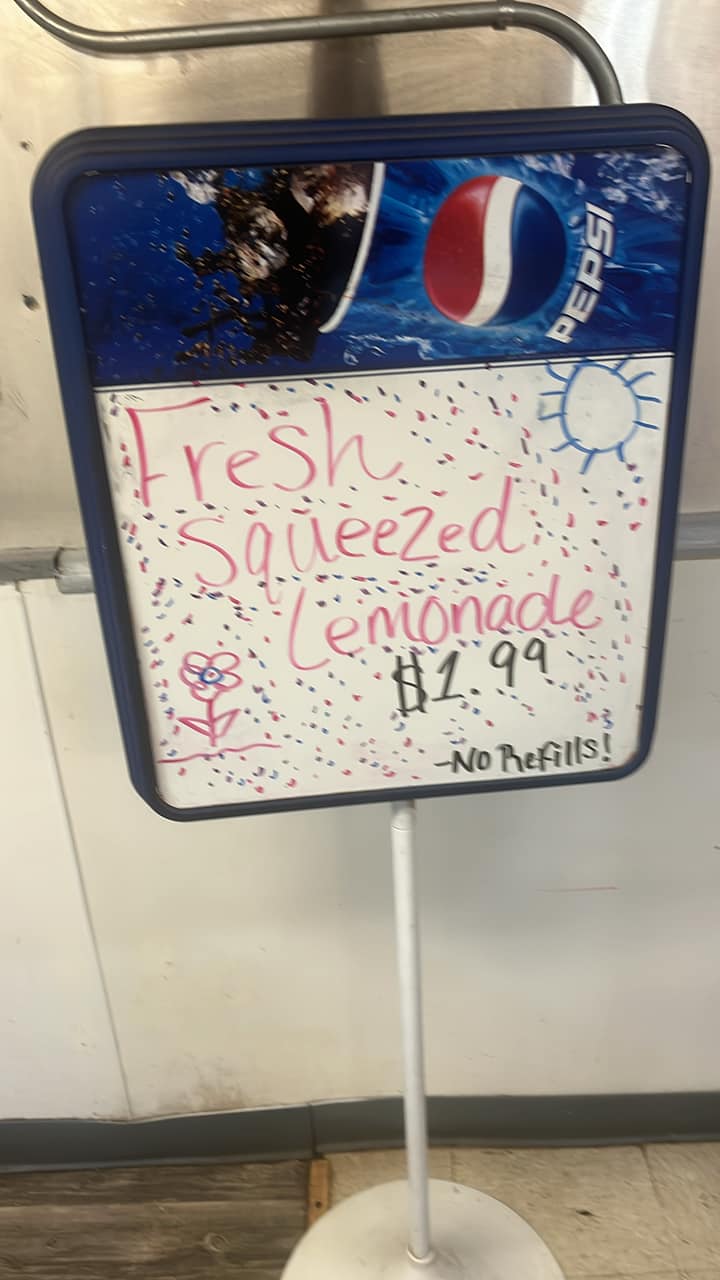 PEPSI
Fresh
Squeezed
Lemonade
$1.99
-No Refills!